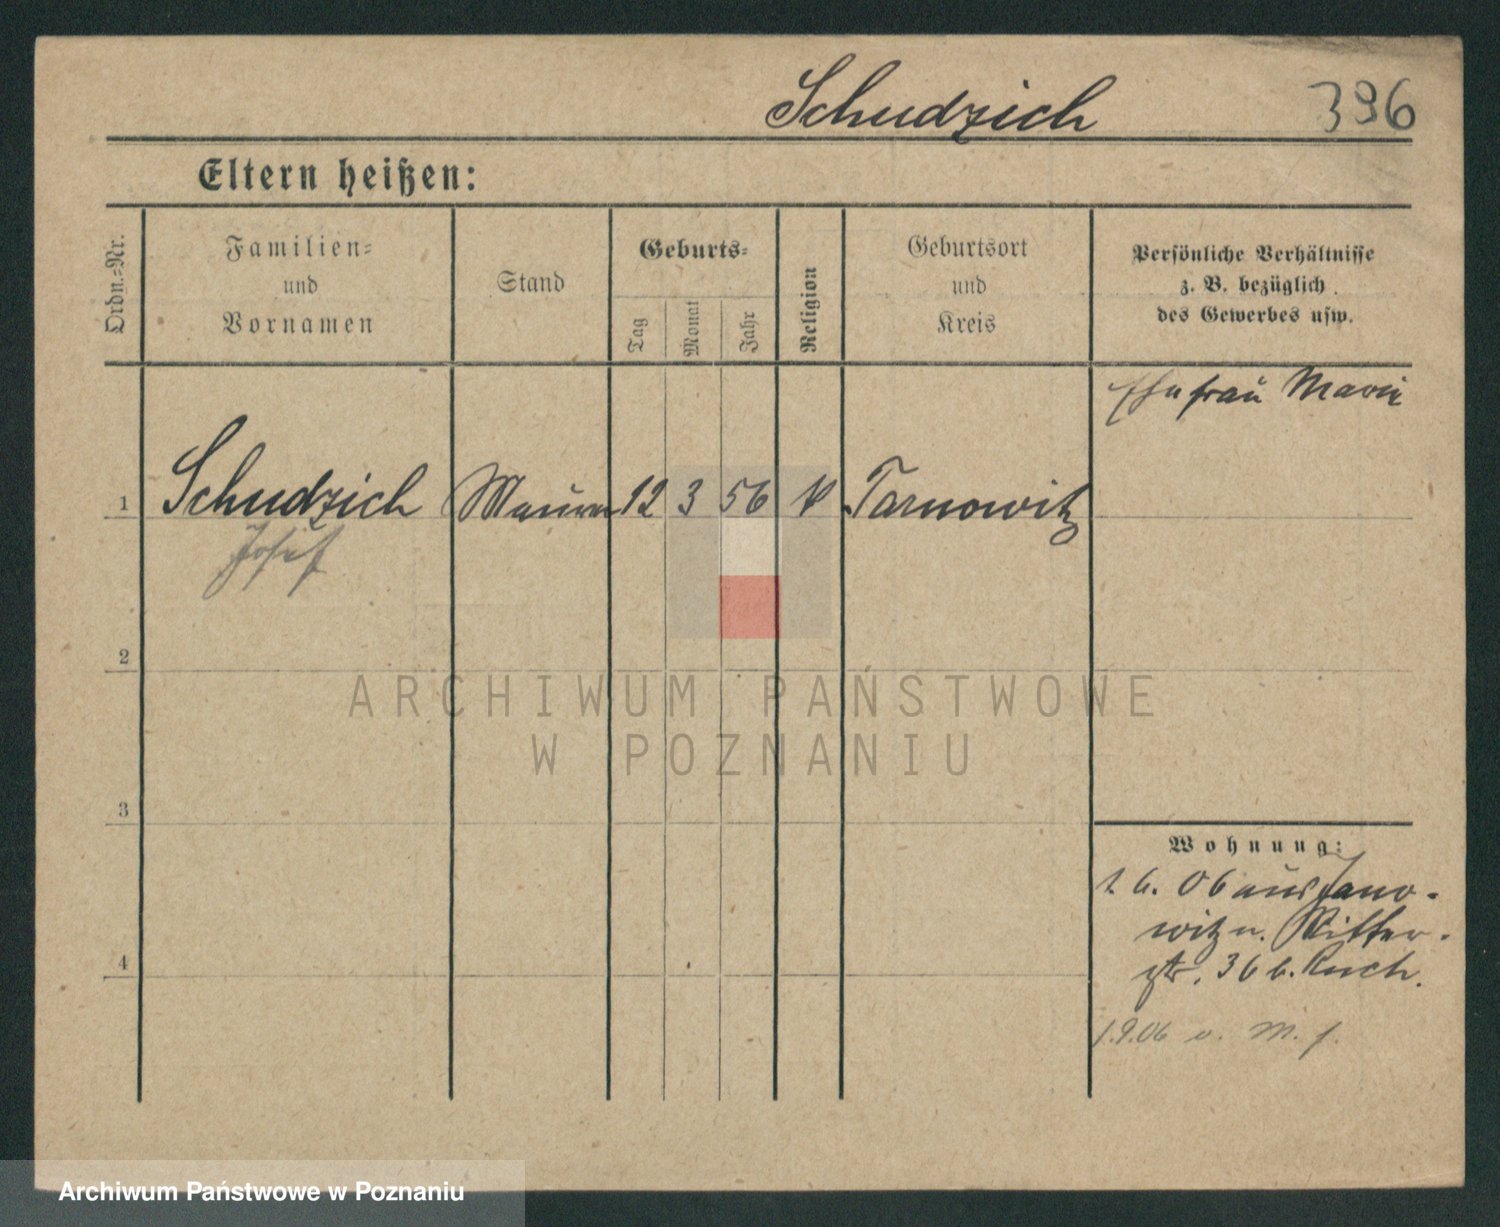 Schudzich
396
Eltern heißen:
Ordn.-Nr.
Familien-
und
Vornamen
Stand
Geburts-
Tag
Monat
Jahr
Religion
Geburtsort
und
Kreis
Persönliche Verhältnisse
z. B. bezüglich
des Gewerbes usw.
Ehefrau Marie
1 Schudzich Maurer 12 3 56 k Tarnowitz
Josef
2
3
4
Wohnung:
1. 6. 06 aus Jano-
witz n. Ritter-
str. 36 b. Ruch.
1.9.06 v. M. f.
ARCHIWUM PAŃSTWOWE
W POZNANIU
Archiwum Państwowe w Poznaniu